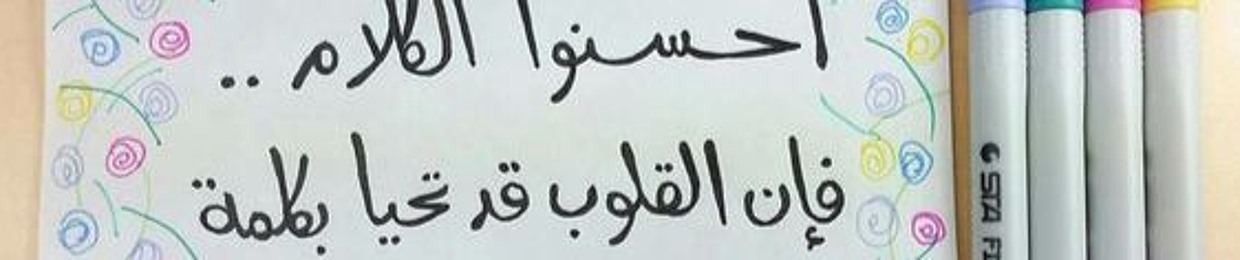 احسنوا الكلام ..
فإن القلوب قد تحيا بكلمة
STA